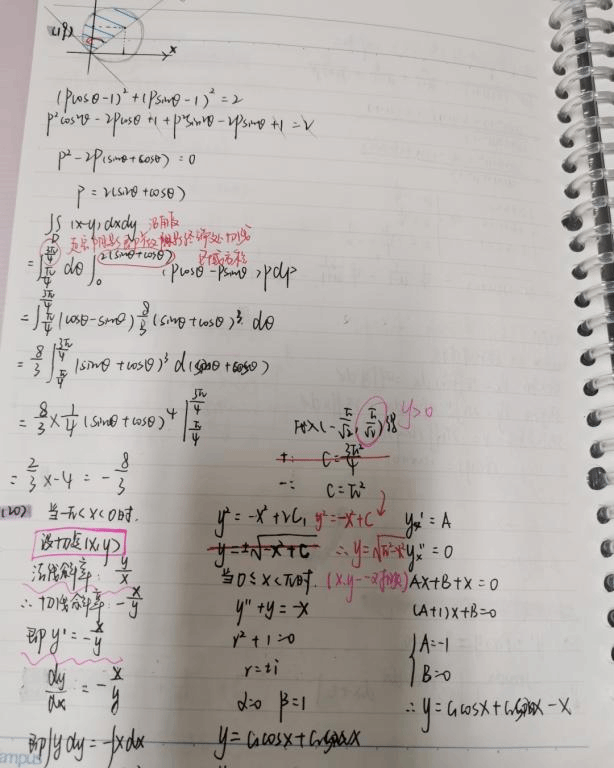 (19)
x
(ρcosθ-1)²+(ρsinθ-1)²=2
ρ²cos²θ-2ρcosθ+1+ρ²sin²θ-2ρsinθ+1=2
ρ²-2ρ(sinθ+cosθ)=0
ρ=2(sinθ+cosθ)
∬_D (x-y)dxdy
=∫_{π/4}^{3π/4} dθ∫_0^{2(sinθ+cosθ)} (ρcosθ-ρsinθ)ρdρ
=∫_{π/4}^{3π/4} (cosθ-sinθ) 8/3 (sinθ+cosθ)³ dθ
=8/3∫_{π/4}^{3π/4} (sinθ+cosθ)³ d(sinθ+cosθ)
=8/3×1/4(sinθ+cosθ)⁴|_{π/4}^{3π/4}
=2/3×-4=-8/3
(20) 当-π<x<0时.
设切点(x,y)
法线斜率: y/x
∴切线斜率: -x/y
即y'=-x/y
dy/dx=-x/y
即∫ydy=-∫xdx
代入(-π/√2, π/√2)得 y>0
+: C=3π²/4
-: C=π²
y²=-x²+2C₁ y²=-x²+C
y=±√(-x²+C) ∴y=√(π²-x²)
当0≤x<π时.
y''+y=-x
r²+1=0
r=±i
α=0 β=1
y=C₁cosx+C₂sinx
y*'=A
y*''=0
Ax+B+x=0
(A+1)x+B=0
{A=-1
B=0
∴y=C₁cosx+C₂sinx-x
ampus